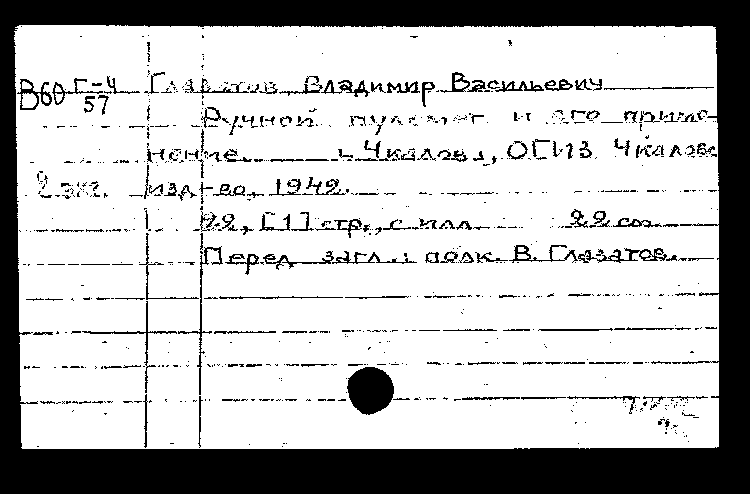 В60 Г-4 Глазатов, Владимир Васильевич
57
Ручной пулемет и его приме-
нение. Чкалов, ОГИЗ Чкаловс
2 экз. изд-во, 1942.
22, [1] стр., с илл. 22 см.
Перед загл.: полк. В. Глазатов.